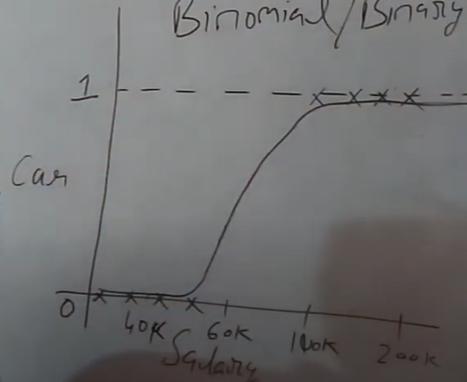 Binomial/Binary
1
Car
0 40K 60K 140K 200K
Salary